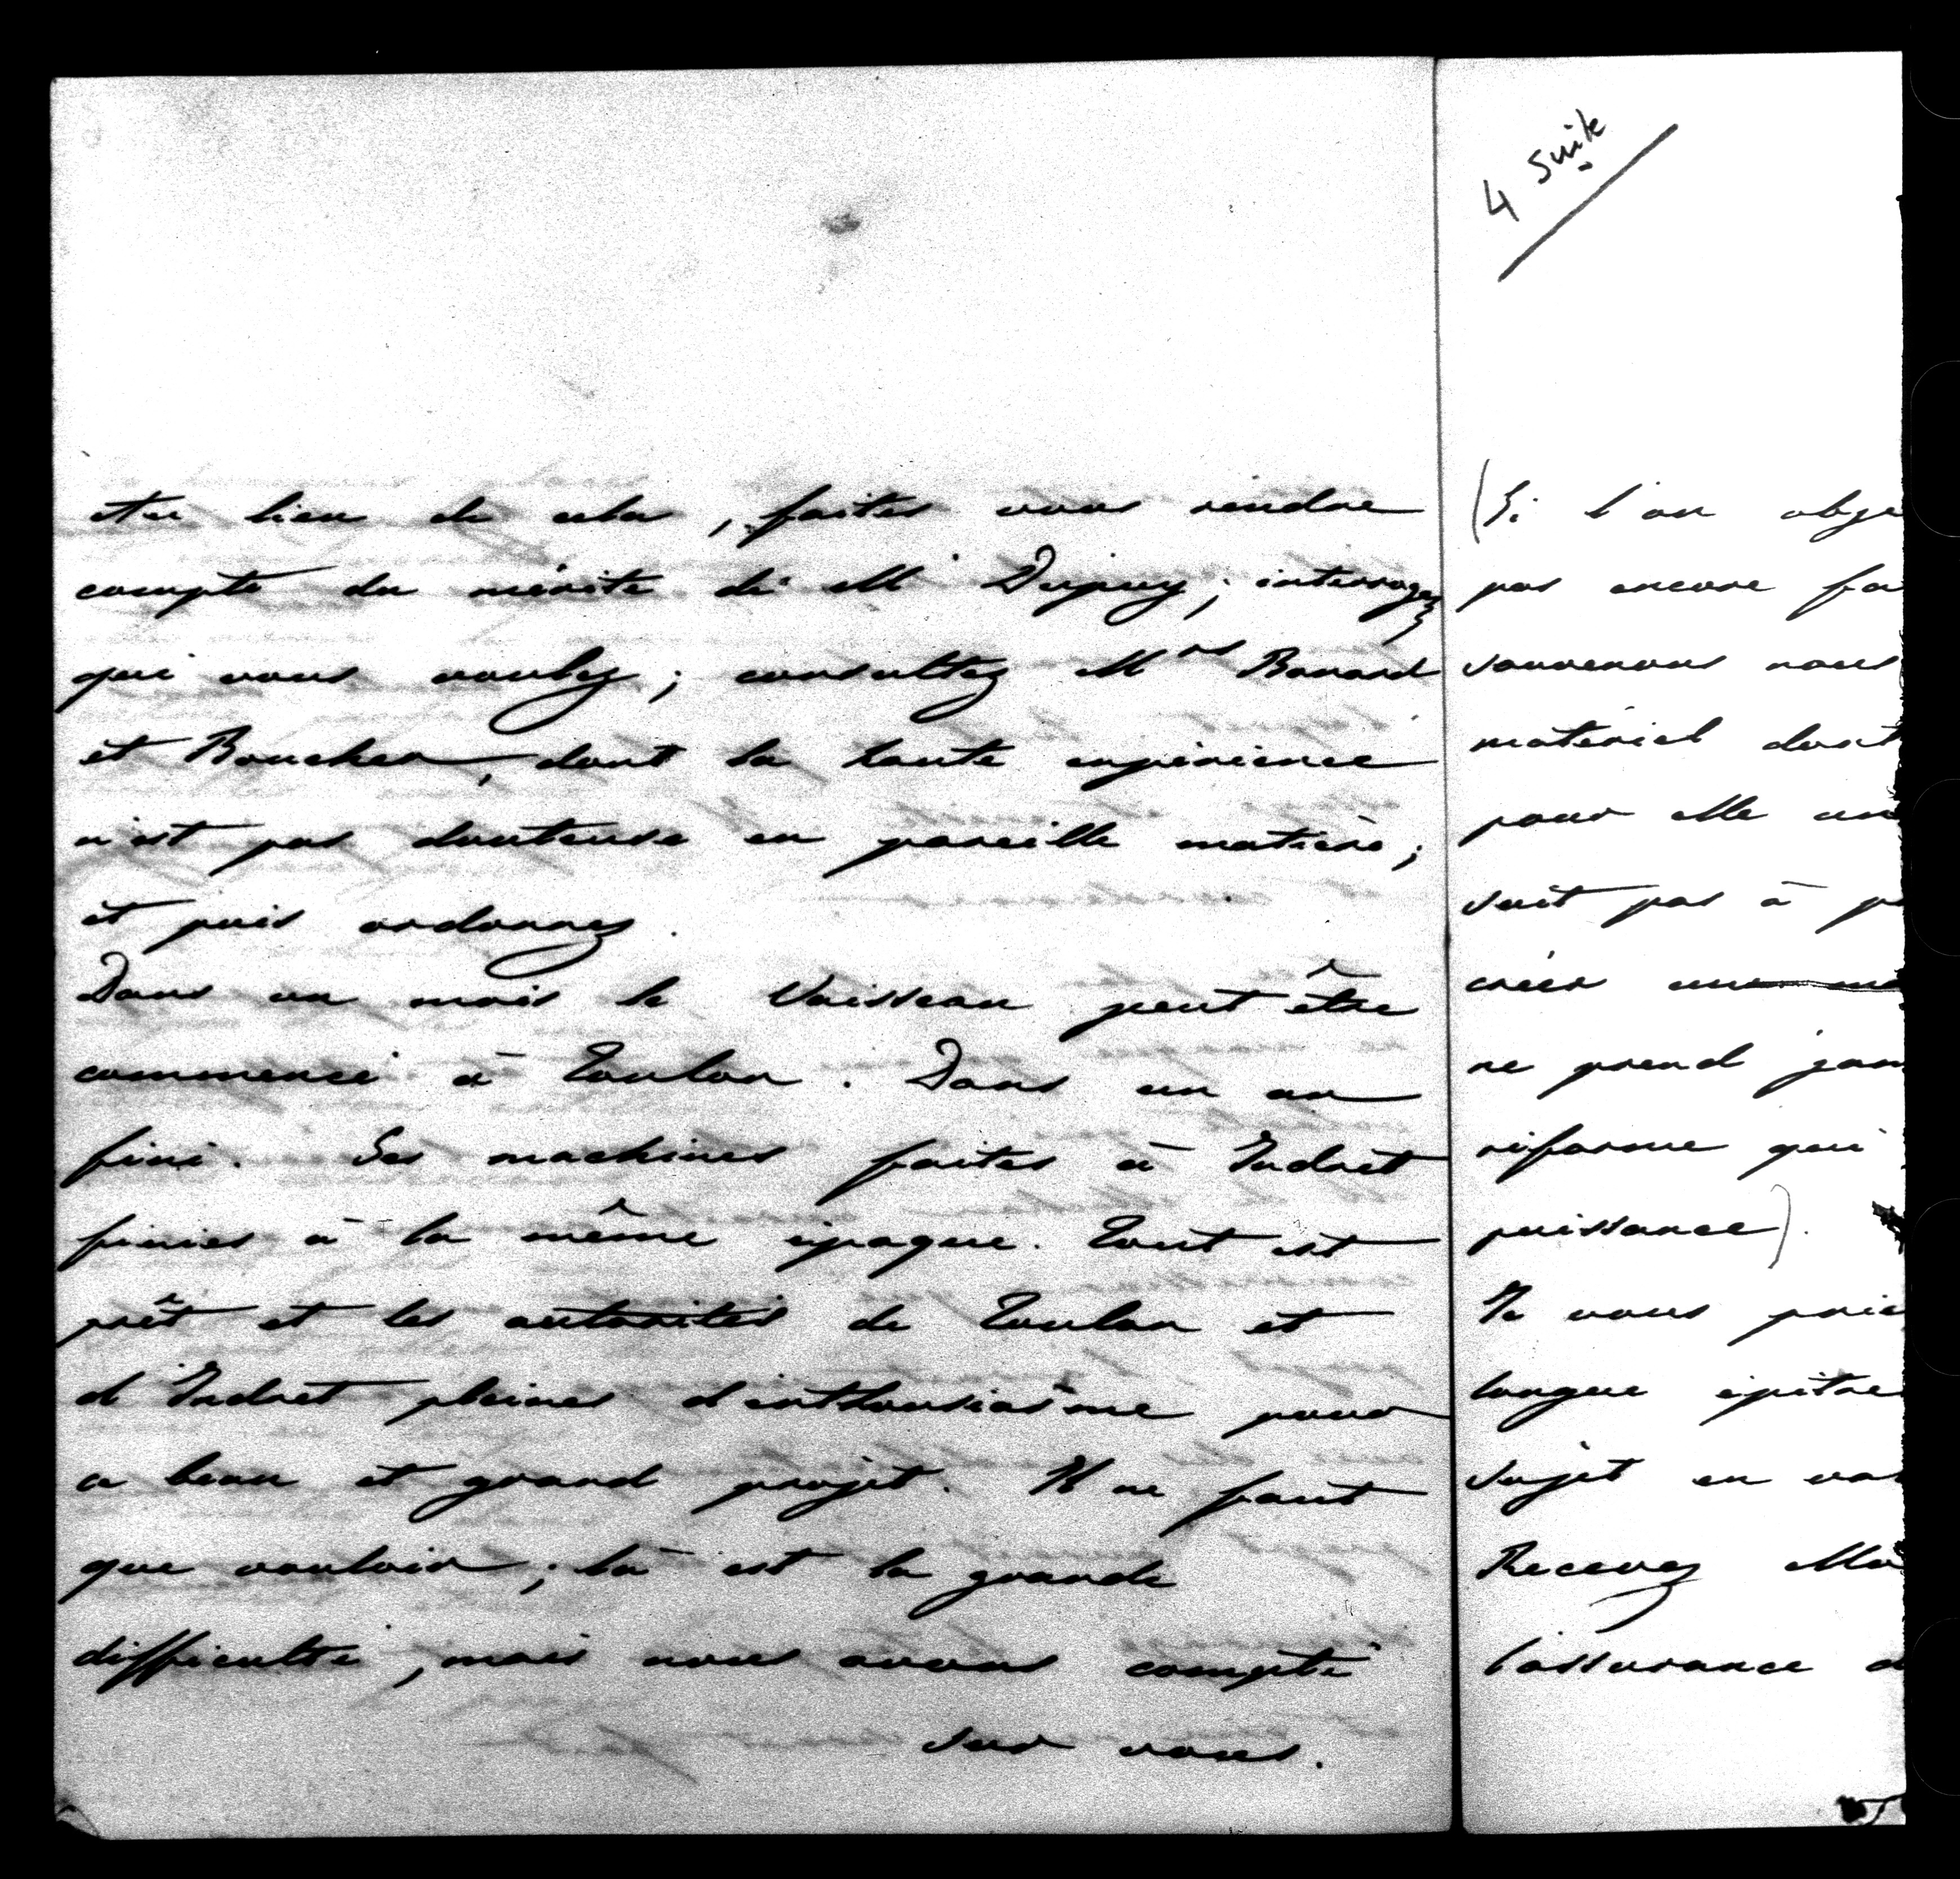 Au lieu de cela, faites vous rendre
compte du mérite de M. Dupuy; interrogez
qui vous voulez; consultez Mrs Bonard
et Boucher, dont la haute expérience
n'est pas douteuse en pareille matière;
et puis ordonnez.
Dans un mois le Vaisseau peut être
commencé à Toulon. Dans un an
fini. Ses machines faites à Indret
finies à la même époque. Tout est
prêt et les autorités de Toulon et
d'Indret pleines d'enthousiasme pour
ce beau et grand projet. Il ne faut
que vouloir; là est la grande
difficulté, mais nous avons compté
sur vous.
4 suite
(Si l'on obje
pas encore fa
souvenons nous
matériel dont
pour elle un
soit pas à p
créer une
ne prend jam
réforme qui
puissance).
Je vous prie
longue épitre
sujet en va
Recevez Mo
l'assurance d